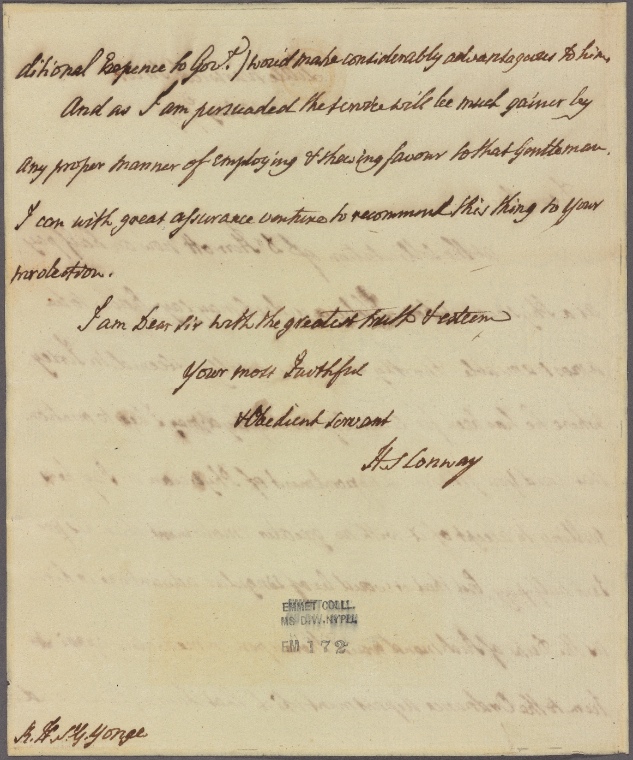 ditional Expence to Gov.t) wou'd make considerably advantageous to him.
And as I am persuaded the service will be much gainer by
any proper manner of employing & shewing favour to that Gentleman.
I can with great assurance venture to recommend this thing to your
protection.
I am Dear Sir with the greatest truth & esteem
Your most Faithful
& Obedient servant
H S Conway
EMMET COLL.
MS DIV. NYPL.
EM 172
R. H. Sr. G. Yonge